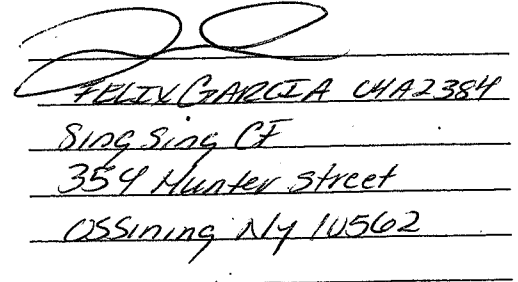 FELIX GARCIA 04A2384
Sing Sing CF
354 Hunter Street
OSSining Ny 10562